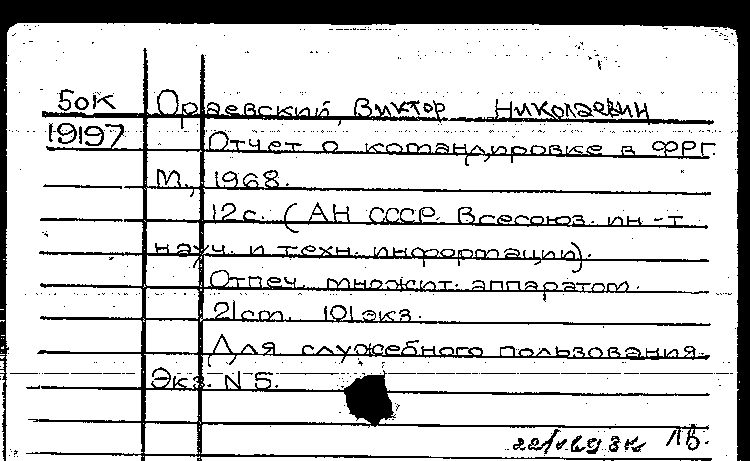 5ок Ораевский, Виктор Николаевич
19197 Отчет о командировке в ФРГ.
М., 1968.
12с. (АН СССР. Всесоюз. ин-т
науч. и техн. информации).
Отпеч. множит. аппаратом.
21cm. 101экз.
Для служебного пользования.
Экз. N 5.